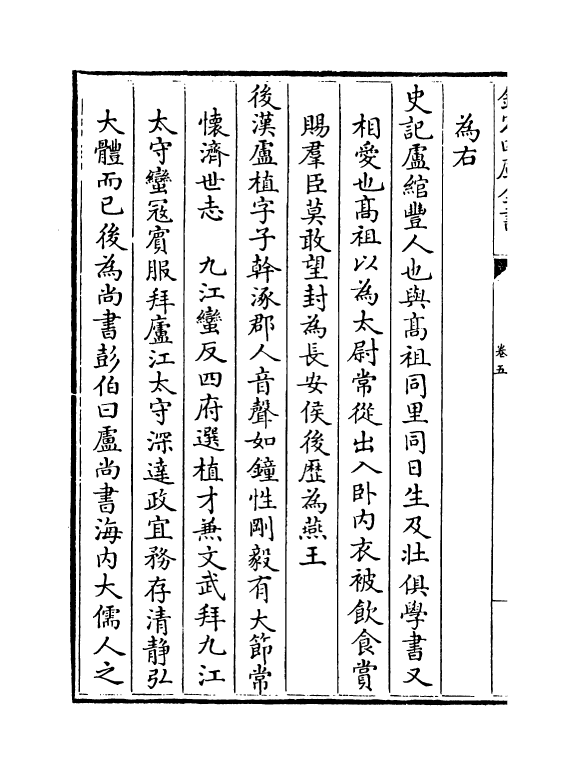 欽定四庫全書
卷五
為右
史記盧綰豐人也與髙祖同里同日生及壯俱學書又
相愛也髙祖以為太尉常從出入卧内衣被飲食賞
賜羣臣莫敢望封為長安侯後歴為燕王
後漢盧植字子幹涿郡人音聲如鐘性剛毅有大節常
懷濟世志　九江蠻反四府選植才兼文武拜九江
太守蠻寇賓服拜廬江太守深達政宜務存清静弘
大體而已後為尚書彭伯曰盧尚書海内大儒人之